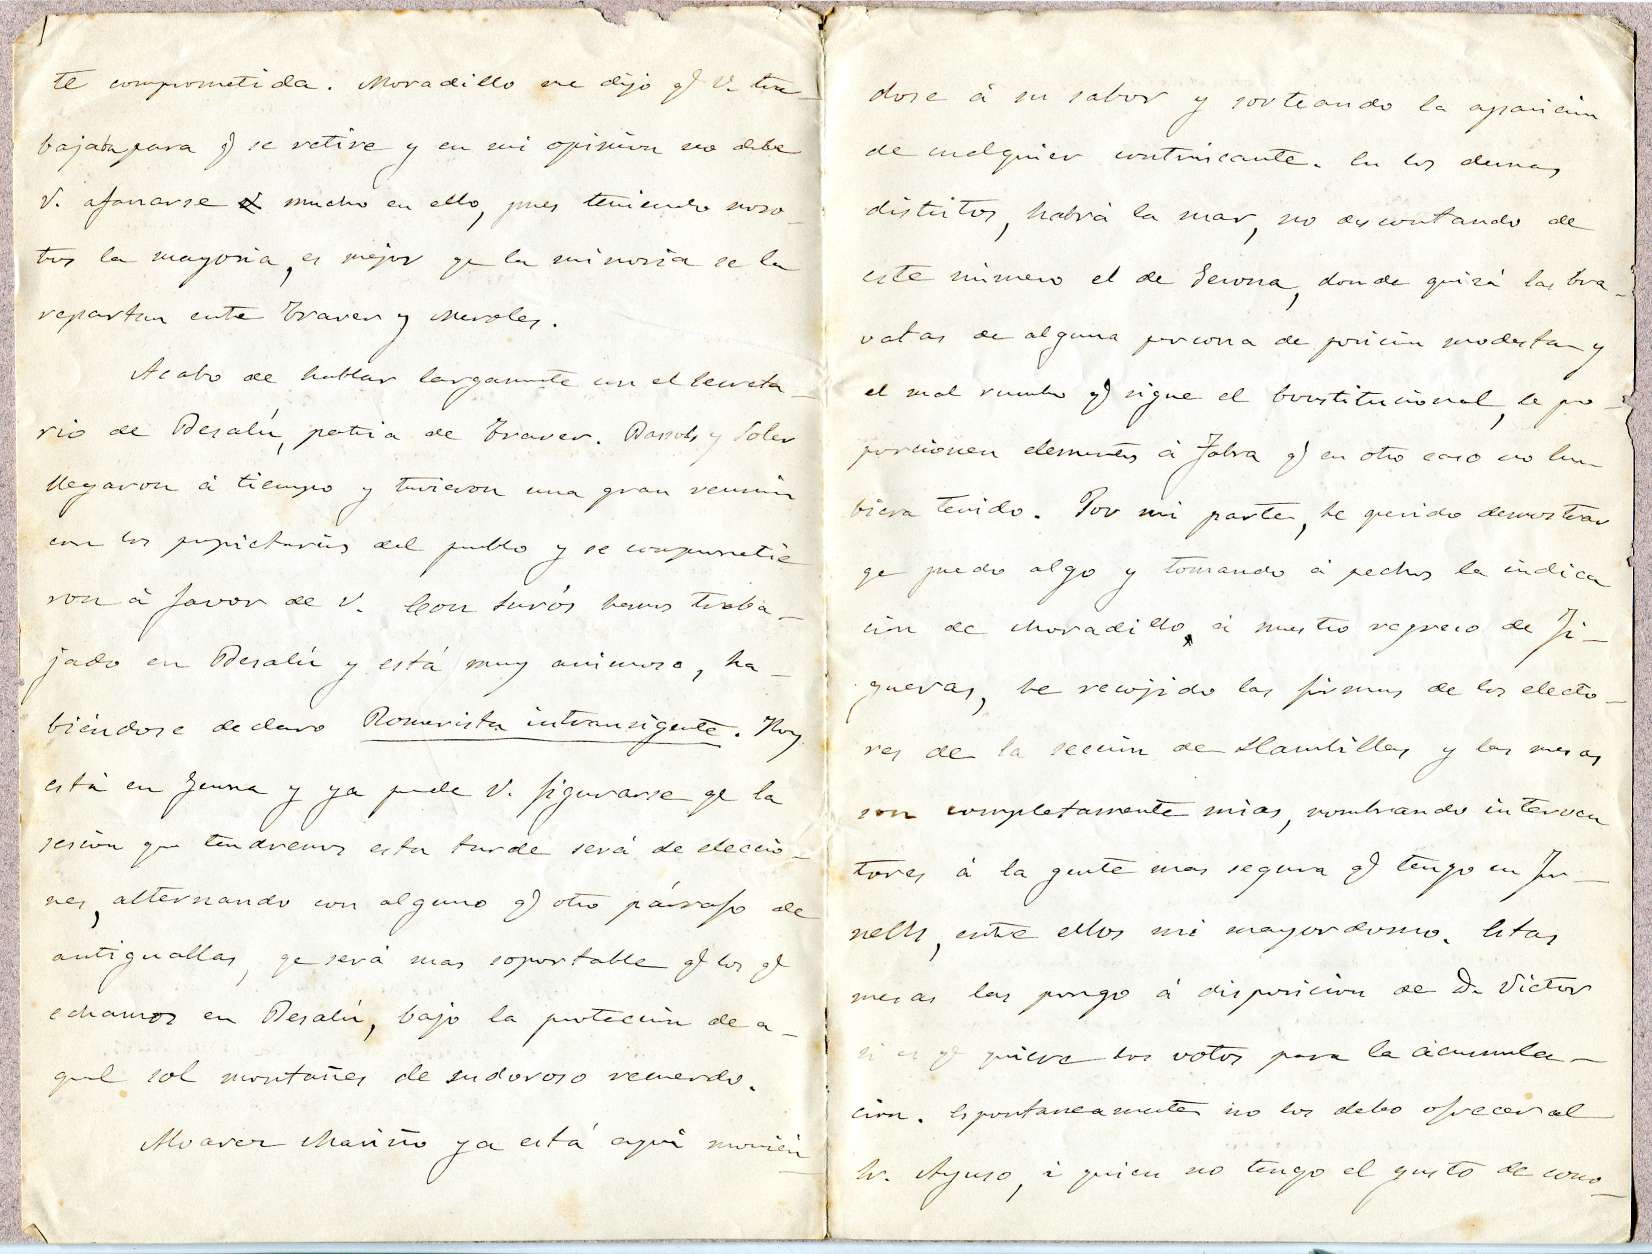 te comprometida. Moradillo me dijo q̃ V. tra-
bajaba para q̃ se retire y en mi opinion no debe
V. afanarse mucho en ello, pues teniendo noso-
tros la mayoria, es mejor qe la minoria se la
repartan entre Traver y Meroles.
Acabo de hablar largamente con el Secreta-
rio de Besalú, patria de Traver. Bassols y Soler
llegaron á tiempo y tuvieron una gran reunion
con los propietarios del pueblo y se comprometie
ron á favor de V. Con Surós hemos traba-
jado en Besalú y está muy animoso, ha-
biéndose declaro Romerista intransigente. Hoy
está en Gerona y ya puede V. figurarse qe la
sesion que tendremos esta tarde será de eleccio-
nes, alternando con alguno q̃ otro párrafo de
antiguallas, qe será mas soportable q̃ los q̃
echamos en Besalú, bajo la proteccion de a-
quel sol montañes de sudoroso recuerdo.
Alvarez Mariño ya está aqui movién
dose á su sabor y sorteando la aparicion
de cualquier contrincante. En los demas
distritos, habrá la mar, no descontando de
este número el de Gerona, donde quizá las bra-
vatas de alguna persona de posicion modesta y
el mal rumbo q̃ sigue el Constitucional, le pro-
porcionen elementos á Fabra q̃ en otro caso no hu-
biera tenido. Por mi parte, he querido demostrar
qe puedo algo y tomando á pechos la indica
cion de Moradillo, á nuestro regreso de Fi-
gueras, he recojido las firmas de los electo-
res de la seccion de Llambillas y las mesas
son completamente mias, nombrando interven
tores á la gente mas segura q̃ tengo en For-
nells, entre ellos mi mayordomo. Estas
mesas las pongo á disposicion de D. Victor
si es q̃ quiere los votos para la acumula-
cion. Espontaneamente no los debo ofrecer al
Sr. Ayuso, á quien no tengo el gusto de cono-